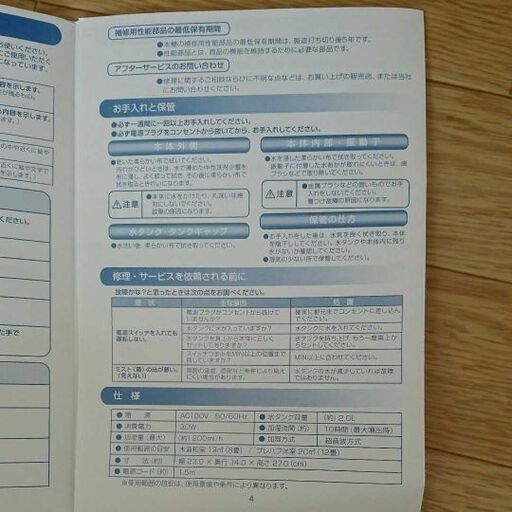 使いください。
ご使用いただく
なっています。
容を示します。
内容を示します。
補修用性能部品の最低保有期間
●本機の補修用性能部品の最低保有期間は、製造打ち切り後5年です。
●性能部品とは、商品の機能を維持するために必要な部品です。
アフターサービスのお問い合わせ
●修理に関するご相談ならびに不明な点などは、お買い上げの販売店、または当社
にお問い合わせください。
お手入れと保管
●必ず一週間に一回以上お手入れしてください。
●必ず電源プラグをコンセントから抜いてから、お手入れしてください。
本体外側
●乾いた柔らかい布で拭いてください。
汚れがひどいときは、水で薄めた中性洗剤少量を
布に浸し、よく絞ってから、その後に柔らかい布で
拭き取るときれいになります。
注意
●本体に水をかけたり、丸洗いは絶
対にしないでください。
故障の原因になります。
水タンク・タンクキャップ
●水洗い後、柔らかい布で拭き取ってください。
本体内部・振動子
●水を浸した柔らかい布で拭き取ってください。
振動子に付着した水あかが取れにくいときは、歯
ブラシなどで取り除いてください。
注意
●金属ブラシなどの固いものでお手
入れをしないでください。
傷つけ故障の原因になります。
保管の仕方
●お手入れをした後は、水気を良く拭き取り、本体
を陰干ししてください。水タンクや本体内に残り
水がないか確認してください。
●湿気の少ない所で保管してください。
修理・サービスを依頼される前に
故障かな?と思ったときは次の点をお調べください。
症状 主な原因 処置
電源スイッチを入れても
運転しない。
電源プラグがコンセントから抜けて
いませんか?
確実に根元までコンセントに差し込ん
でください。
水タンクに水が入っていますか?
水タンクに水を入れてください。
水タンクを真上から本体に正しく
セットしてありますか?
水タンクを持ち上げ、もう一度真上か
らセットしてください。
スイッチつまみをMIN以上の位置まで
回していますか?
MIN以上に合わせてください。
ミスト(霧)の出が悪い。
(見えない)
部屋の湿度、温度など条件により見え
にくい場合があります。
水タンクの水が減少していれば故障
ではありません。
仕様
●電源 AC100V 50/60Hz
●消費電力 30W
●加湿量(最大) (約)200ml/h
●使用範囲の目安 木造和室 13㎡(8畳) / プレハブ洋室 20㎡(12畳)
●寸法(約) 幅 23.0 × 奥行 14.0 × 高さ 27.0 (cm)
●電源コード(約) 1.5m
●水タンク容量 (約) 2.0L
●加湿時間(約) 10時間 (最大噴出時)
●加湿方式 超音波方式
※使用範囲の目安は、使用環境や条件により異なります。
4